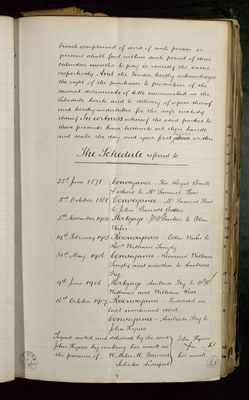 breach complained of and if such person or
persons shall fail within such period of three
calendar months to pay or remedy the same
respectively And the Vendor hereby acknowledges
the right of the purchaser to production of the
several documents of title enumerated in the
Schedule hereto and to delivery of copies thereof
and hereby undertakes for the safe custody
thereof In witness whereof the said parties to
these presents have hereunto set their hands
and seals the day and year first above written
The Schedule referred to
23rd June 1871 Conveyance The Royal Bank
& others to Mr Samuel
Conveyance Mr Samuel
to John
November Mortgage to Ellen
February 1903 Reconveyance Ellen to
William
30th May 1906 Conveyance Reverend William
and another to Andrew
19th June 1906 Mortgage Andrew to
and William
16th October 1907 Reconveyance Endorsed on
last mentioned deed
Conveyance Andrew to
John Hynes
Signed sealed and delivered by the said John Hynes
John Hynes by making his mark in his mark
the presence of
Solicitor Liverpool